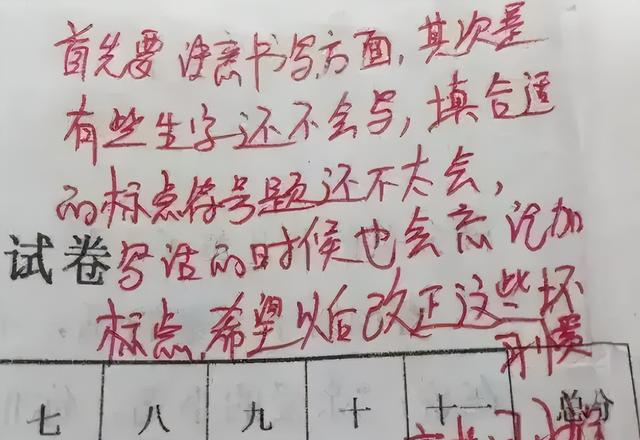 首先要注意书写方面,其次是
有些生字还不会写,填合适
的标点符号题还不太会,
试卷写话的时候也会忘记加
标点,希望以后改正这些坏
习惯
七 八 九 十 十一 总分